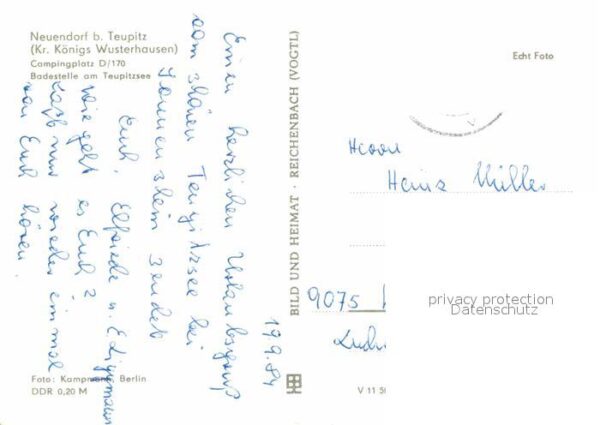 Neuendorf b. Teupitz
(Kr. Königs Wusterhausen)
Campingplatz D/170
Badestelle am Teupitzsee
Einen herzlichen Urlaubsgruß
vom schönen Teupitzsee bei
Sonnenschein sendet
Euch, Elfriede u.
wie geht es Euch?
Laßt mal wieder einmal
von Euch hören.
19.9.84
Foto: Kampmann, Berlin
DDR 0,20 M
BILD UND HEIMAT · REICHENBACH (VOGTL)
Echt Foto
Herrn
Heinz Müller
9075
privacy protection
Datenschutz
V 11 50